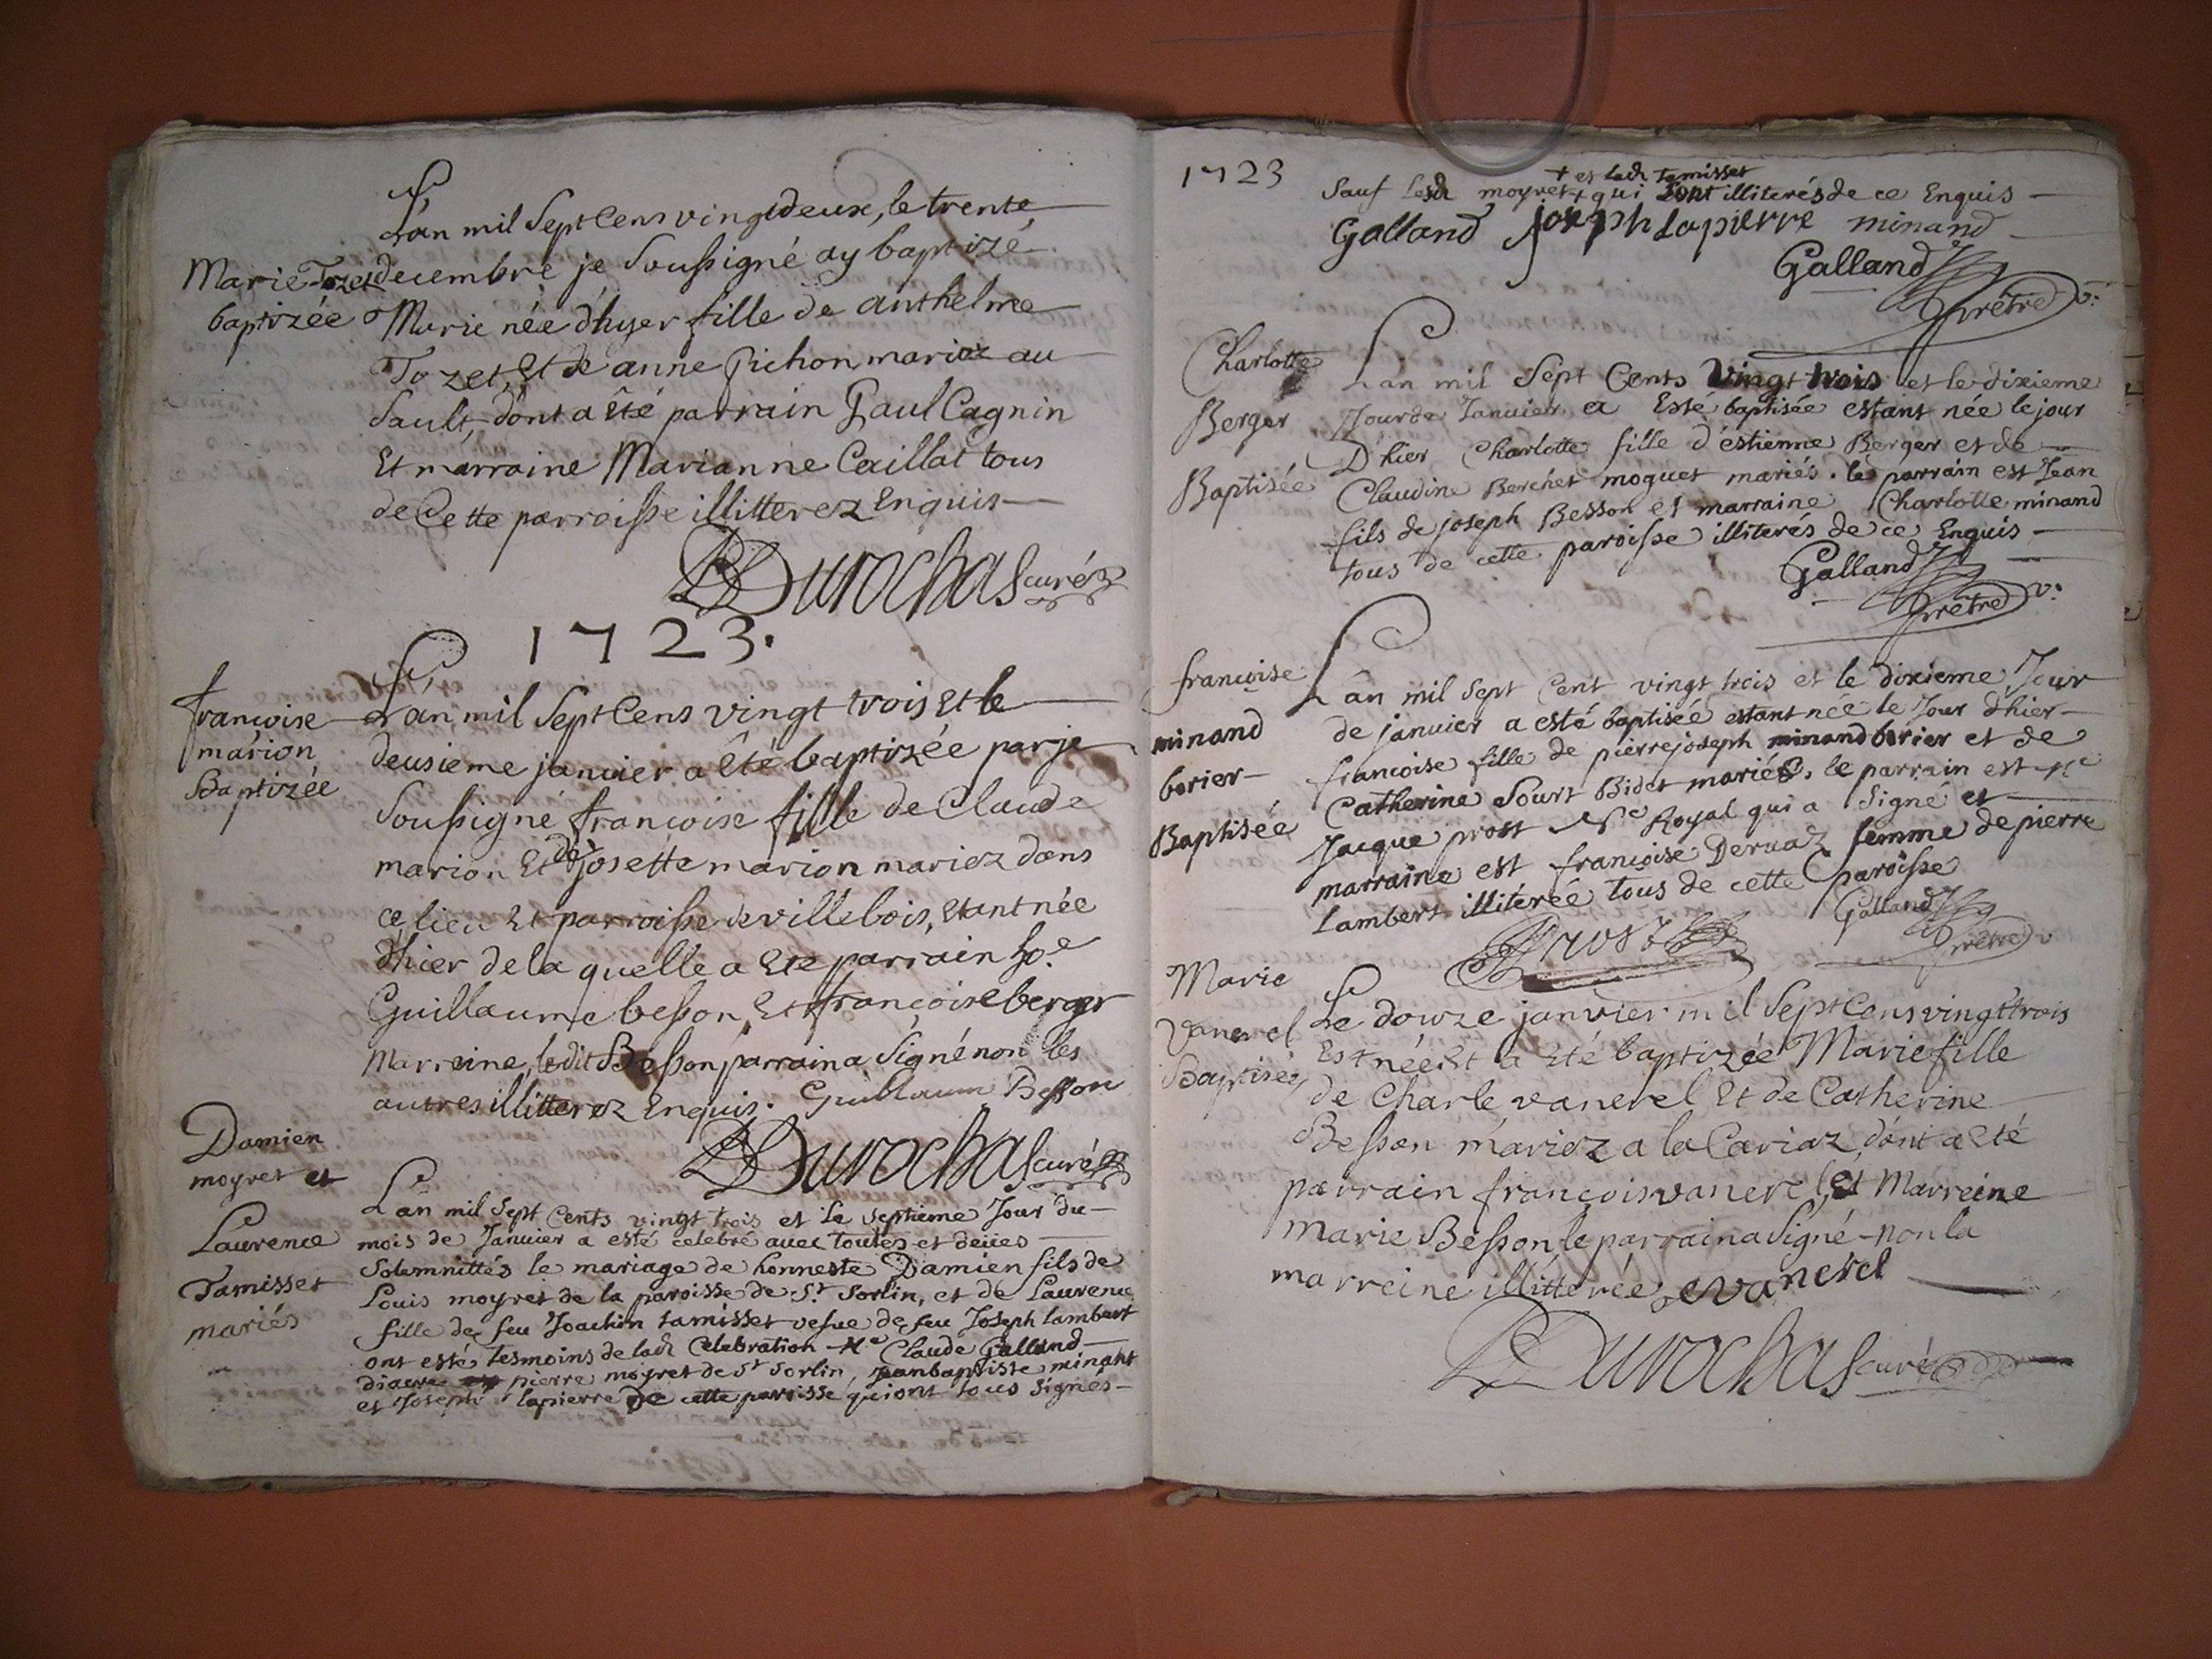 L'an mil Sept Cens vingtdeux, le trente
Marie Tozet decembre je Soussigné ay baptizé
baptizée Marie née d'hyer fille de anthelme
Tozet, Et de anne Pichon mariez au
Sault, dont a êté parrain Paul Cagnin
Et marraine Marianne Caillat tous
de Cette parroisse illitterez Enquis
Durochas curé
1723.
francoise L'an mil Sept Cens vingt trois Et le
marion deusieme janvier a êté baptizée par je
Baptizée Soussigné francoise fille de Claude
marion Et de Josette marion mariez dans
ce lieu Et parroisse de villebois, Etant née
d'hier de la quelle a Eté parrain ho.e
Guillaume besson, Et françoise berger
Marreine, ledit Besson parrain a Signé non les
autres illitterez Enquis. Guillaume Besson
Durochas curé
Damien
moyret et
Laurence
Tamisset
mariés
L'an mil Sept Cents vingt trois et le septieme Jour du
mois de Janvier a esté celebré avec toutes et deües
Solemnittés le mariage de honneste Damien fils de
Louis moyret de la paroisse de St Sorlin, et de Laurence
fille de feu Joachin tamisset vefue de feu Joseph lambert
ont esté tesmoins de lad Celebration Me Claude Galland
diacre pierre moyret de St Sorlin, Jeanbaptiste minant
et Joseph lapierre de cette parrisse qui ont tous signés
1723
+ et lad tamisset
Sauf lesd moyret + qui sont illiterés de ce Enquis
Galland joseph Lapierre minand
Galland
Prêtre v.
Charlotte
Berger
Baptisée
L'an mil Sept Cents Vingt trois et le dixieme
Jour de Janvier a Esté baptisée estant née le jour
D'hier Charlotte fille d'estienne Berger et de
Claudine Berchet moguet mariés. le parrain est Jean
fils de joseph Besson et marraine Charlotte minand
tous de cette paroisse illiterés de ce Enquis
Galland
Prêtre v.
francoise
minand
borier
Baptisée
L'an mil Sept Cent vingt trois et le dixieme Jour
de janvier a esté baptisée estant née le Jour d'hier
francoise fille de pierre joseph minand borier et de
Catherine Sourt Bidet mariés. le parrain est Me
Jacque prost Nre Royal qui a Signé et
marraine est francoise Dervaz femme de pierre
Lambert illitérée tous de cette paroisse
Prost
Galland
Prêtre v.
Marie
Vanerel
Baptisée
Le douze janvier mil Sept Cens vingt trois
Est née Et a Eté baptizée Marie fille
de Charle vanerel Et de Catherine
Besson mariez a la Cariaz, dont a Eté
parrain françois vanerel, et Marreine
Marie Besson, le parrain a Signé non la
marreine illitterée, vanerel
Durochas curé